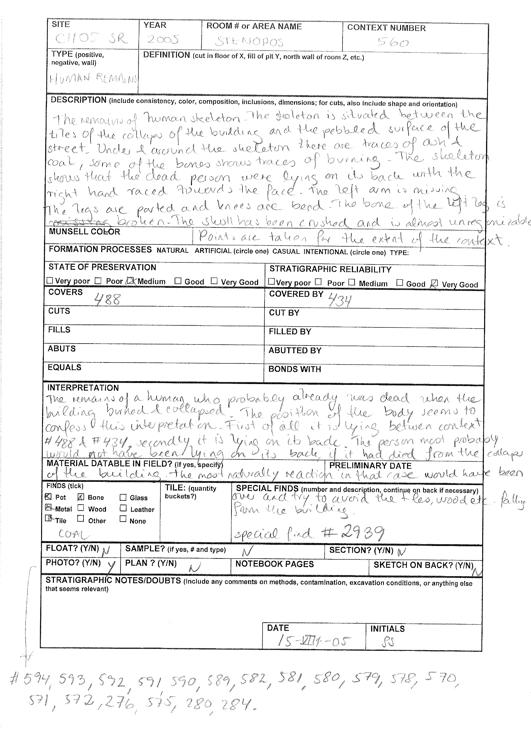 SITE YEAR ROOM # or AREA NAME CONTEXT NUMBER
CH05 SR 2005 STENOPOS 560
TYPE (positive, negative, wall) DEFINITION (cut in floor of X, fill of pit Y, north wall of room Z, etc.)
HUMAN REMAINS
DESCRIPTION (include consistency, color, composition, inclusions, dimensions; for cuts, also include shape and orientation)
The remains of human skeleton. The skeleton is situated between the
tiles of the collaps of the building and the pebbled surface of the
street. Under & around the skeleton there are traces of ash &
coal, some of the bones shows traces of burning. The skeleton
shows that the dead person were lying on its back with the
right hand raced towards the face. The left arm is missing
The legs are parted and knees are bend. The bone of the left leg is
broken. The skull has been crushed and is almost unregonizable
MUNSELL COLOR Points are taken for the extent of the context.
FORMATION PROCESSES NATURAL ARTIFICIAL (circle one) CASUAL INTENTIONAL (circle one) TYPE:
STATE OF PRESERVATION STRATIGRAPHIC RELIABILITY
☐ Very poor ☐ Poor ☑ Medium ☐ Good ☐ Very Good ☐ Very poor ☐ Poor ☐ Medium ☐ Good ☑ Very Good
COVERS 488 COVERED BY 434
CUTS CUT BY
FILLS FILLED BY
ABUTS ABUTTED BY
EQUALS BONDS WITH
INTERPRETATION
The remains of a human who probably already was dead when the
building burned & collapsed. The position of the body seems to
confess this interpretation. First of all it is lying between context
#488 & #434, secondly it is lying on its back. The person most probably
would not have been lying on its back if it had died from the collapse
of the building, the most naturally reaction in that case would have been
MATERIAL DATABLE IN FIELD? (if yes, specify) PRELIMINARY DATE
FINDS (tick) TILE: (quantity buckets?) SPECIAL FINDS (number and description, continue on back if necessary)
☑ Pot ☑ Bone ☐ Glass over and try to avoid the tiles, wood etc. falling
☑ Metal ☐ Wood ☐ Leather from the building.
☑ Tile ☐ Other ☐ None
COAL special find #2939
FLOAT? (Y/N) N SAMPLE? (if yes, # and type) N SECTION? (Y/N) N
PHOTO? (Y/N) Y PLAN ? (Y/N) N NOTEBOOK PAGES SKETCH ON BACK? (Y/N) N
STRATIGRAPHIC NOTES/DOUBTS (Include any comments on methods, contamination, excavation conditions, or anything else that seems relevant)
DATE INITIALS
15-VIII-05 SS
#594, 593, 592, 591, 590, 589, 582, 581, 580, 579, 578, 570,
571, 572, 276, 575, 280, 284.